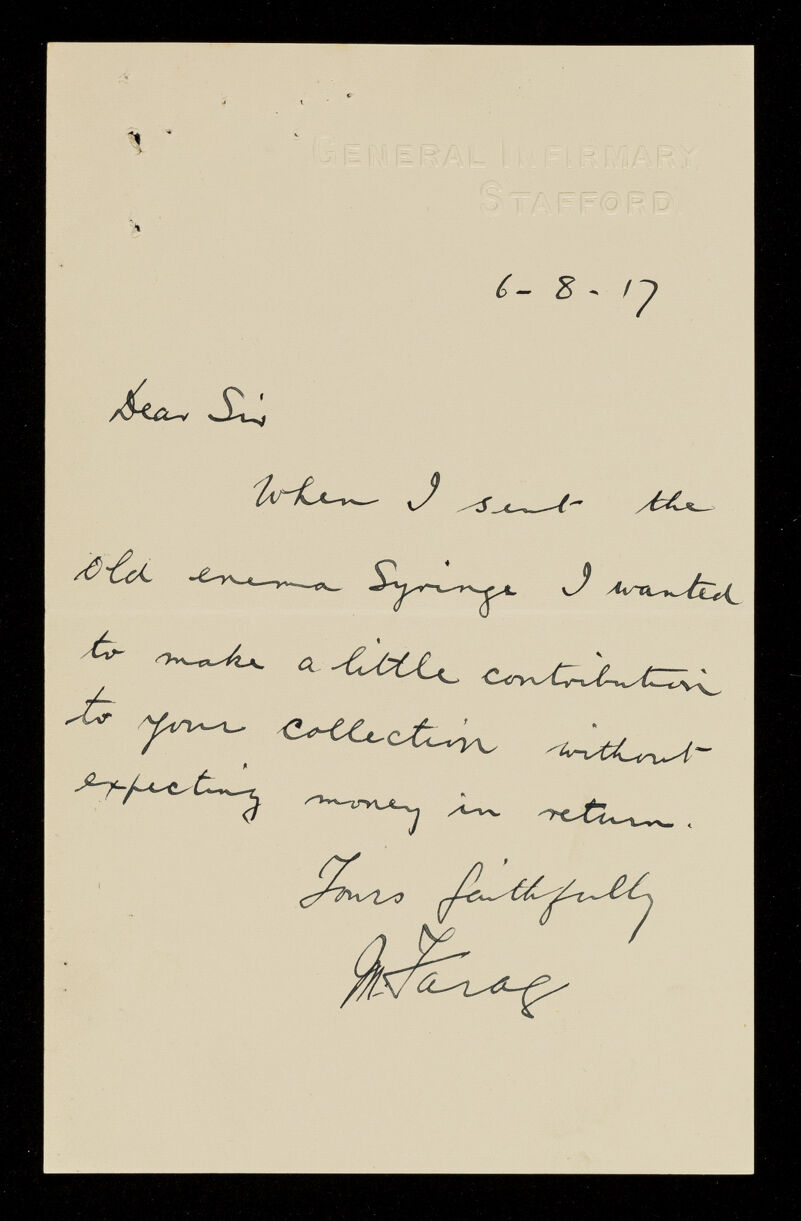 GENERAL INFIRMARY,
STAFFORD.
6 - 8 - 17
Dear Sir
When I sent the
old enema Syringe I wanted
to make a little contribution
to your collection without
expecting money in return.
Yours faithfully
M. Farag